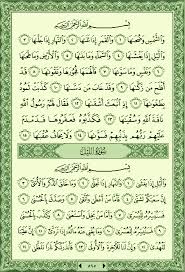 بِسْمِ ٱللَّهِ ٱلرَّحْمَٰنِ ٱلرَّحِيمِ
وَٱلشَّمْسِ وَضُحَىٰهَا ١ وَٱلْقَمَرِ إِذَا تَلَىٰهَا ٢ وَٱلنَّهَارِ إِذَا جَلَّىٰهَا ٣
وَٱلَّيْلِ إِذَا يَغْشَىٰهَا ٤ وَٱلسَّمَآءِ وَمَا بَنَىٰهَا ٥ وَٱلْأَرْضِ وَمَا طَحَىٰهَا
٦ وَنَفْسٍ وَمَا سَوَّىٰهَا ٧ فَأَلْهَمَهَا فُجُورَهَا وَتَقْوَىٰهَا ٨
قَدْ أَفْلَحَ مَن زَكَّىٰهَا ٩ وَقَدْ خَابَ مَن دَسَّىٰهَا ١٠ كَذَّبَتْ ثَمُودُ
بِطَغْوَىٰهَآ ١١ إِذِ ٱنۢبَعَثَ أَشْقَىٰهَا ١٢ فَقَالَ لَهُمْ رَسُولُ ٱللَّهِ
نَاقَةَ ٱللَّهِ وَسُقْيَٰهَا ١٣ فَكَذَّبُوهُ فَعَقَرُوهَا فَدَمْدَمَ
عَلَيْهِمْ رَبُّهُم بِذَنۢبِهِمْ فَسَوَّىٰهَا ١٤ وَلَا يَخَافُ عُقْبَٰهَا ١٥
سُورَةُ اللَّيْلِ
بِسْمِ ٱللَّهِ ٱلرَّحْمَٰنِ ٱلرَّحِيمِ
وَٱلَّيْلِ إِذَا يَغْشَىٰ ١ وَٱلنَّهَارِ إِذَا تَجَلَّىٰ ٢ وَمَا خَلَقَ ٱلذَّكَرَ وَٱلْأُنثَىٰٓ ٣
إِنَّ سَعْيَكُمْ لَشَتَّىٰ ٤ فَأَمَّا مَنْ أَعْطَىٰ وَٱتَّقَىٰ ٥ وَصَدَّقَ بِٱلْحُسْنَىٰ ٦
فَسَنُيَسِّرُهُۥ لِلْيُسْرَىٰ ٧ وَأَمَّا مَنۢ بَخِلَ وَٱسْتَغْنَىٰ ٨ وَكَذَّبَ بِٱلْحُسْنَىٰ ٩
فَسَنُيَسِّرُهُۥ لِلْعُسْرَىٰ ١٠ وَمَا يُغْنِى عَنْهُ مَالُهُۥٓ إِذَا تَرَدَّىٰٓ ١١ إِنَّ عَلَيْنَا
لَلْهُدَىٰ ١٢ وَإِنَّ لَنَا لَلْـَٔاخِرَةَ وَٱلْأُولَىٰ ١٣ فَأَنذَرْتُكُمْ نَارًا تَلَظَّىٰ ١٤
٥٩٥